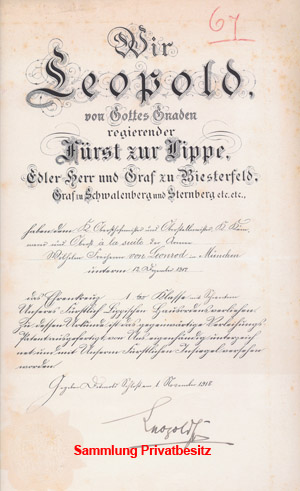 67
Wir
Leopold,
von Gottes Gnaden
regierender
Fürst zur Lippe,
Edler Herr und Graf zu Biesterfeld,
Graf zu Schwalenberg und Sternberg etc. etc.,
haben dem K. Obersthofmeister und Oberstallmeister, K. Käm-
merer und Oberst à la suite der Armee
Wilhelm Freiherrn von Leonrod in München
unterm 12. Dezember
das Ehrenkreuz 1ter Klasse
Unseres Fürstlich Lippischen Hausordens verliehen.
Zu dessen Urkunde ist das gegenwärtige Verleihungs-
Patent ausgefertigt, von Uns eigenhändig unterzeich-
net und mit Unserm Fürstlichen Insiegel versehen
worden.
Gegeben Detmold, Schloss am 1. November 1918
Leopold
Sammlung Privatbesitz